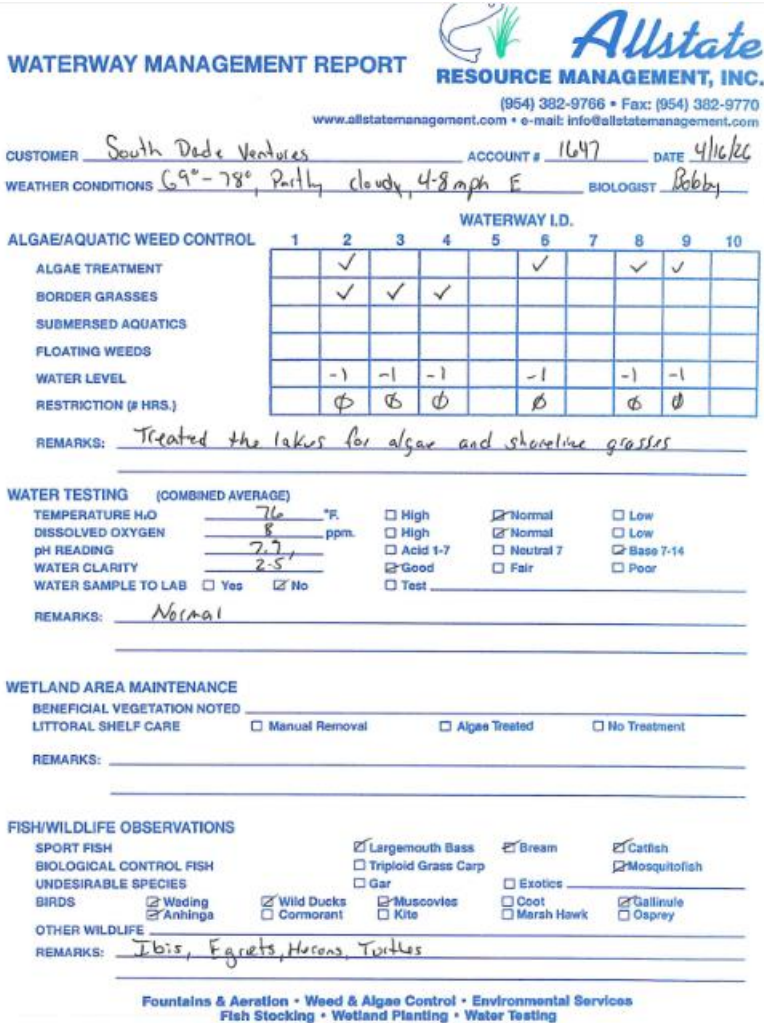 Allstate
WATERWAY MANAGEMENT REPORT
RESOURCE MANAGEMENT, INC.
(954) 382-9766 • Fax: (954) 382-9770
www.allstatemanagement.com • e-mail: info@allstatemanagement.com
CUSTOMER South Dade Ventures ACCOUNT # 1647 DATE 4/16/26
WEATHER CONDITIONS 69°-78°, Partly cloudy, 4-8 mph E BIOLOGIST Bobby
WATERWAY I.D.
ALGAE/AQUATIC WEED CONTROL 1 2 3 4 5 6 7 8 9 10
ALGAE TREATMENT ✓ ✓ ✓ ✓
BORDER GRASSES ✓ ✓ ✓
SUBMERSED AQUATICS
FLOATING WEEDS
WATER LEVEL -1 -1 -1 -1 -1 -1
RESTRICTION (# HRS.) Ø Ø Ø Ø Ø Ø
REMARKS: Treated the lakes for algae and shoreline grasses
WATER TESTING (COMBINED AVERAGE)
TEMPERATURE H₂O 76 °F. ☐ High ☑ Normal ☐ Low
DISSOLVED OXYGEN 8 ppm. ☐ High ☑ Normal ☐ Low
pH READING 7.7 ☐ Acid 1-7 ☐ Neutral 7 ☑ Base 7-14
WATER CLARITY 2-5 ☑ Good ☐ Fair ☐ Poor
WATER SAMPLE TO LAB ☐ Yes ☑ No ☐ Test
REMARKS: Normal
WETLAND AREA MAINTENANCE
BENEFICIAL VEGETATION NOTED
LITTORAL SHELF CARE ☐ Manual Removal ☐ Algae Treated ☐ No Treatment
REMARKS:
FISH/WILDLIFE OBSERVATIONS
SPORT FISH ☑ Largemouth Bass ☑ Bream ☑ Catfish
BIOLOGICAL CONTROL FISH ☐ Triploid Grass Carp ☑ Mosquitofish
UNDESIRABLE SPECIES ☐ Gar ☐ Exotics
BIRDS ☑ Wading ☑ Wild Ducks ☑ Muscovies ☐ Coot ☑ Gallinule
☑ Anhinga ☐ Cormorant ☐ Kite ☐ Marsh Hawk ☐ Osprey
OTHER WILDLIFE
REMARKS: Ibis, Egrets, Herons, Turtles
Fountains & Aeration • Weed & Algae Control • Environmental Services
Fish Stocking • Wetland Planting • Water Testing